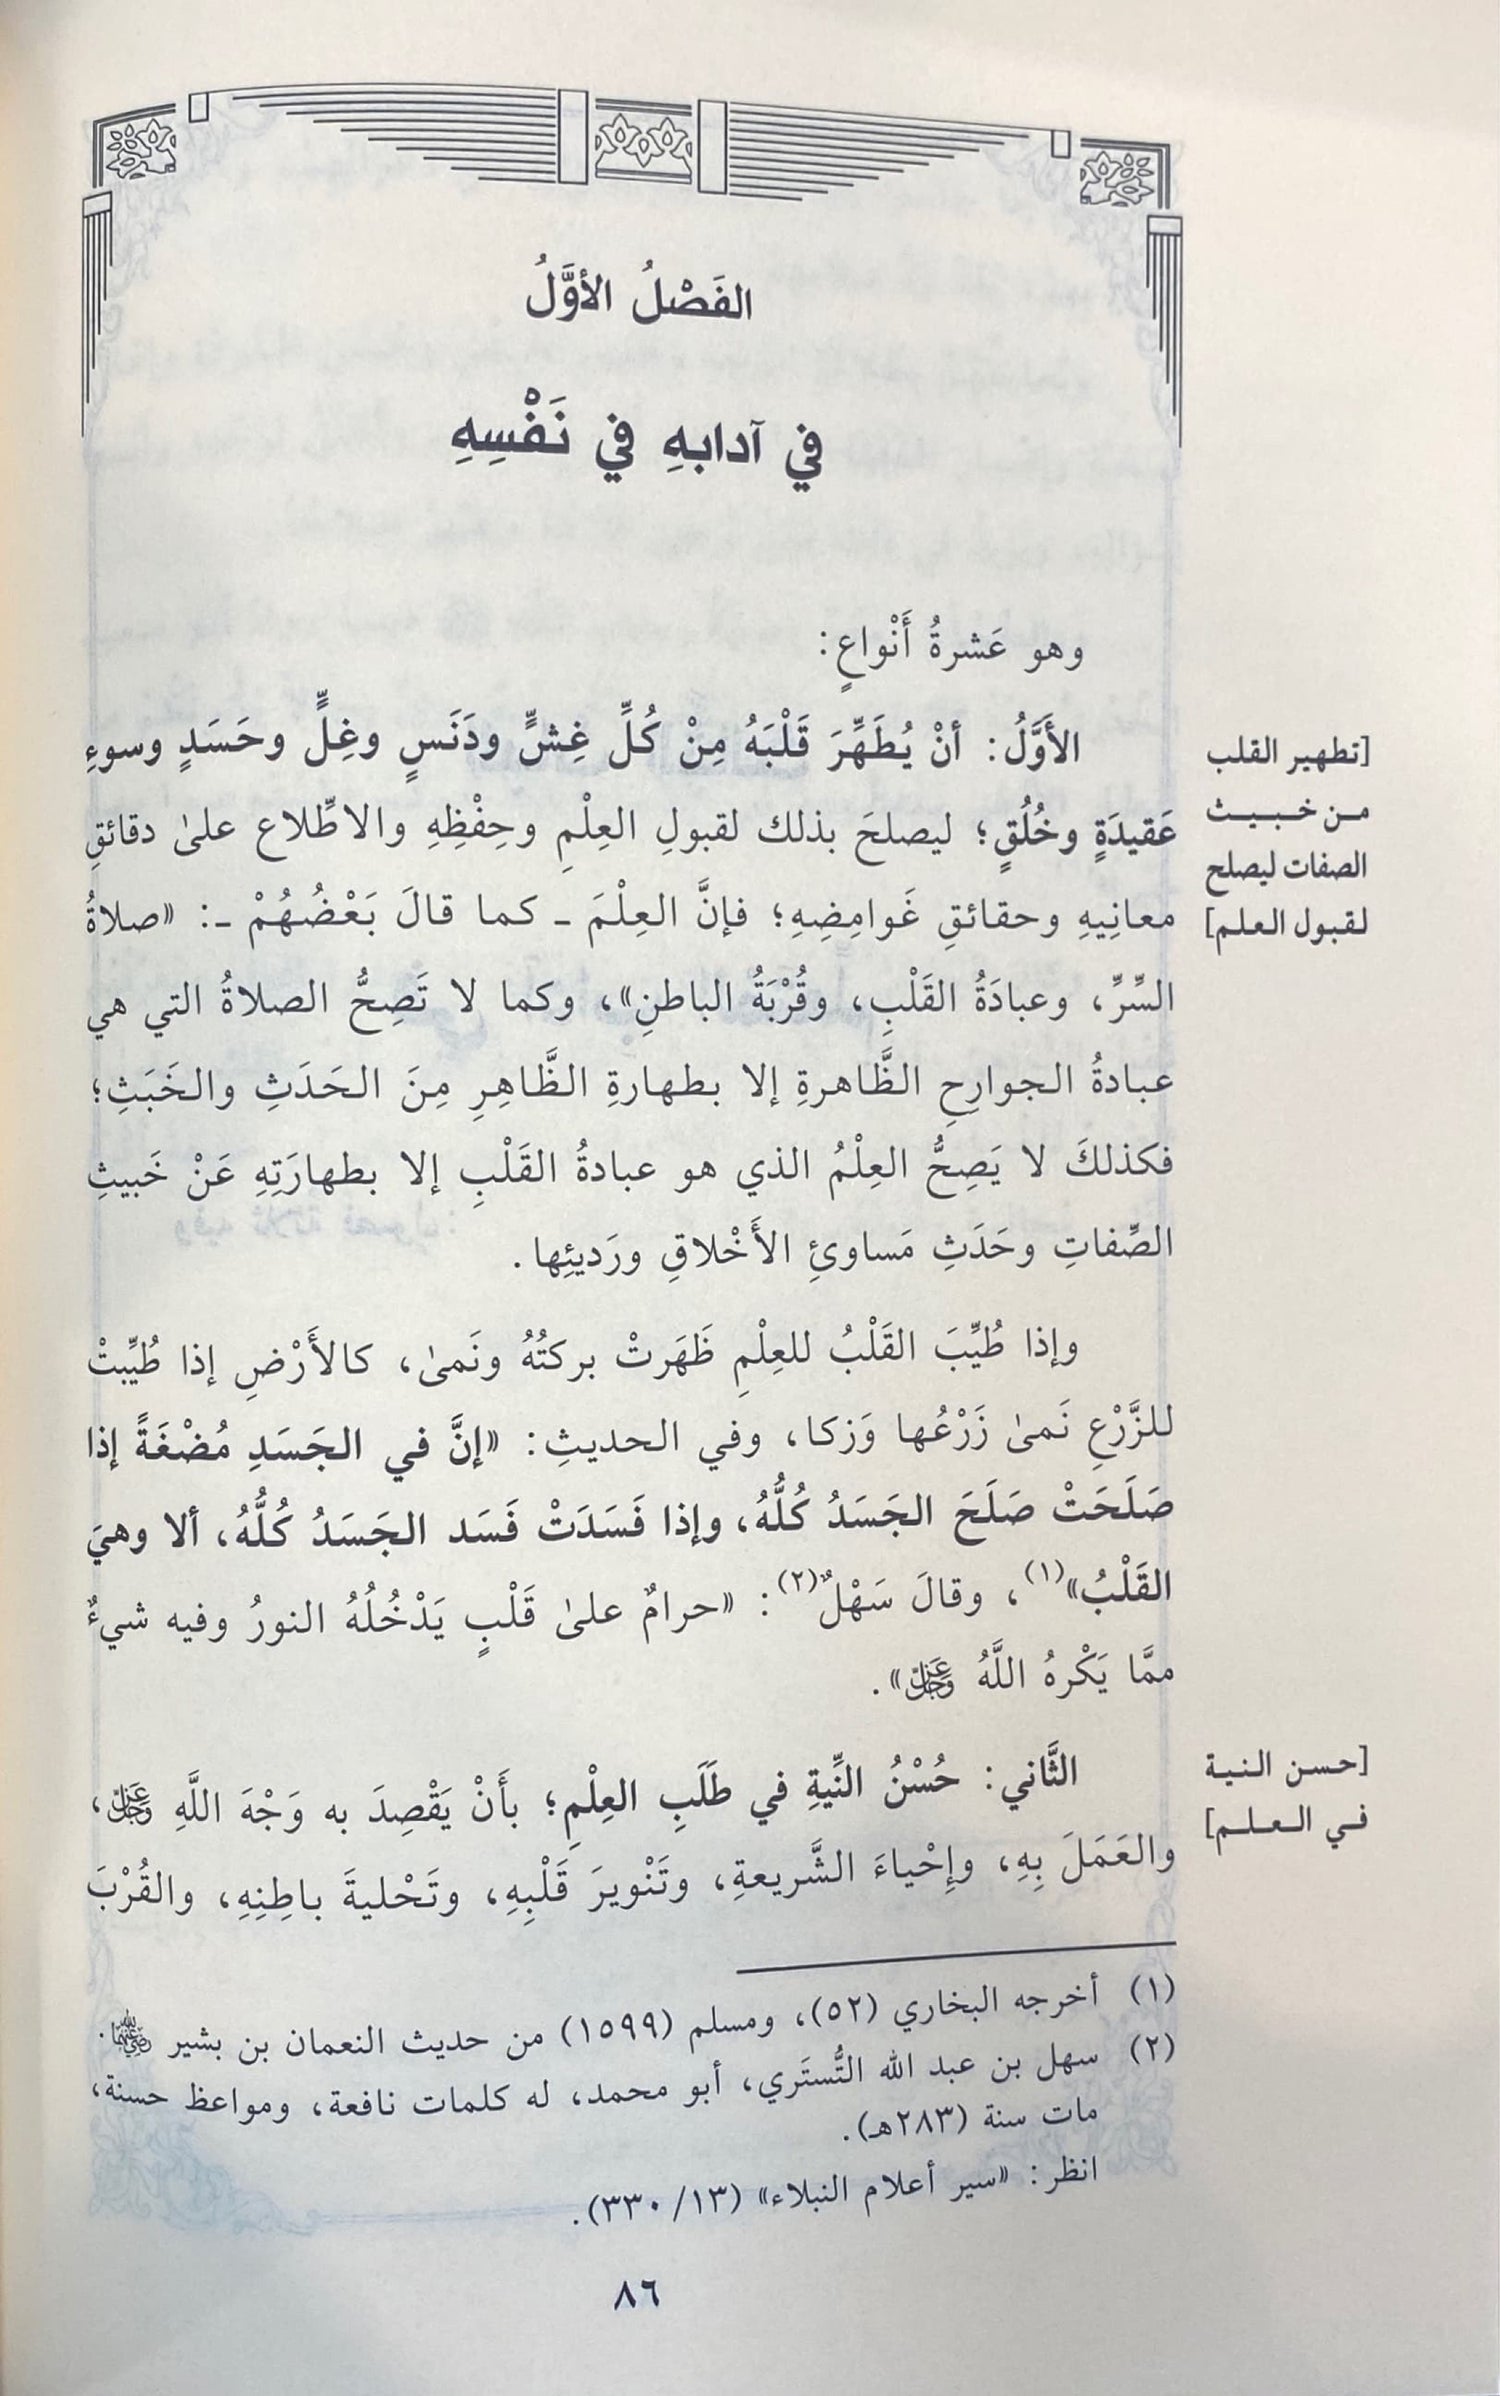 الفَصْلُ الأوَّلُ
في آدابهِ في نَفْسِهِ
وهو عَشرةُ أَنْواعٍ:
الأَوَّلُ: أنْ يُطَهِّرَ قَلْبَهُ مِنْ كُلِّ غِشٍّ ودَنَسٍ وغِلٍّ وحَسَدٍ وسوءِ
عَقيدَةٍ وخُلُقٍ؛ ليصلحَ بذلك لقبولِ العِلْمِ وحِفْظِهِ والاطِّلاع علىٰ دقائقِ
معانِيهِ وحقائقِ غَوامِضِهِ؛ فإنَّ العِلْمَ ـ كما قالَ بَعْضُهُمْ ـ: «صلاةُ
السِّرِّ، وعبادَةُ القَلْبِ، وقُرْبَةُ الباطنِ»، وكما لا تَصِحُّ الصلاةُ التي هي
عبادةُ الجوارِحِ الظَّاهرةِ إلا بطهارةِ الظَّاهِرِ مِنَ الحَدَثِ والخَبَثِ؛
فكذلكَ لا يَصِحُّ العِلْمُ الذي هو عبادةُ القَلْبِ إلا بطهارَتِهِ عَنْ خَبيثِ
الصِّفاتِ وحَدَثِ مَساوئِ الأَخْلاقِ ورَديئِها.
[تطهير القلب
من خبيث
الصفات ليصلح
لقبول العلم]
وإذا طُيِّبَ القَلْبُ للعِلْمِ ظَهَرتْ بركتُهُ ونَمىٰ، كالأَرْضِ إذا طُيِّبتْ
للزَّرْعِ نَمىٰ زَرْعُها وَزكا، وفي الحديثِ: «إنَّ في الجَسَدِ مُضْغَةً إذا
صَلَحَتْ صَلَحَ الجَسَدُ كُلُّهُ، وإذا فَسَدَتْ فَسَد الجَسَدُ كُلُّهُ، ألا وهيَ
القَلْبُ»(١)، وقالَ سَهْلٌ(٢): «حرامٌ علىٰ قَلْبٍ يَدْخُلُهُ النورُ وفيه شيءٌ
ممَّا يَكْرهُ اللَّهُ عَزَّ وَجَلَّ».
الثَّاني: حُسْنُ النِّيةِ في طَلَبِ العِلْمِ؛ بأَنْ يَقْصِدَ به وَجْهَ اللَّهِ عَزَّ وَجَلَّ،
والعَمَلَ بِهِ، وإِحْياءَ الشَّريعةِ، وتَنْويرَ قَلْبِهِ، وتَحْليةَ باطِنِهِ، والقُرْبَ
[حسن النية
في العلم]
(١) أخرجه البخاري (٥٢)، ومسلم (١٥٩٩) من حديث النعمان بن بشير رضي الله عنهما.
(٢) سهل بن عبد الله التُّستَري، أبو محمد، له كلمات نافعة، ومواعظ حسنة،
مات سنة (٢٨٣هـ).
انظر: «سير أعلام النبلاء» (١٣/ ٣٣٠).
٨٦